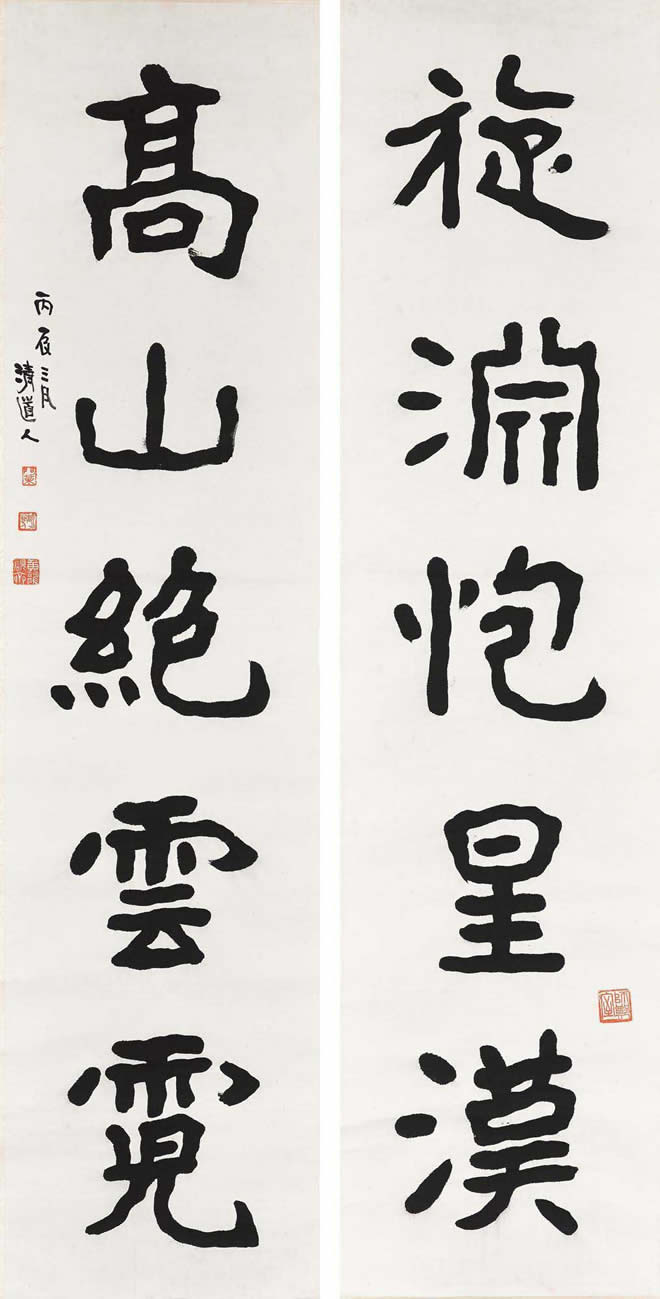 旋淵怉星漢
高山絕雲霓
丙辰三月
清道人